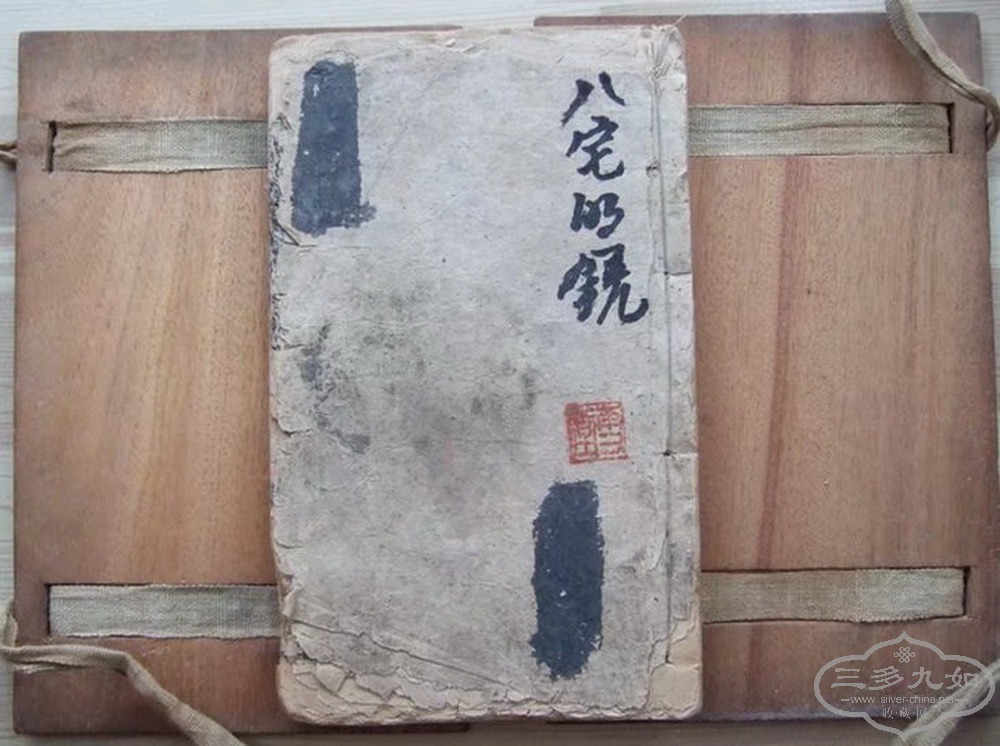 八宅明鏡
三多九如
www.silver-china.net
收·藏·网